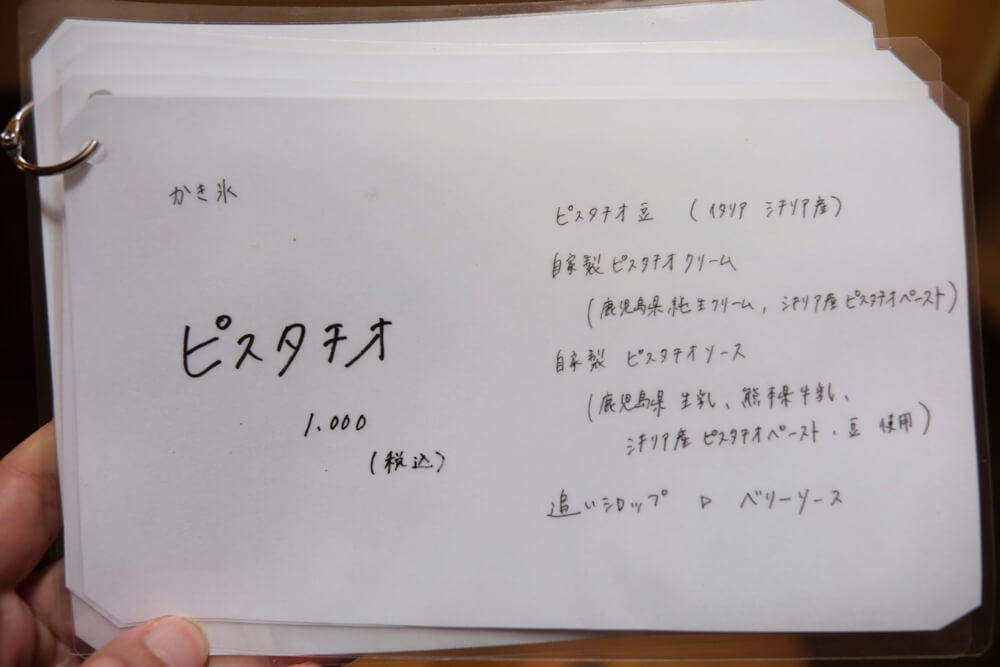 かき氷
ピスタチオ
1.000
(税込)
ピスタチオ豆 (イタリア シチリア産)
自家製ピスタチオクリーム
(鹿児島県純生クリーム, シチリア産ピスタチオペースト)
自家製 ピスタチオソース
(鹿児島県生乳、熊本県牛乳、
シチリア産ピスタチオペースト、豆 使用)
追いシロップ ▷ ベリーソース